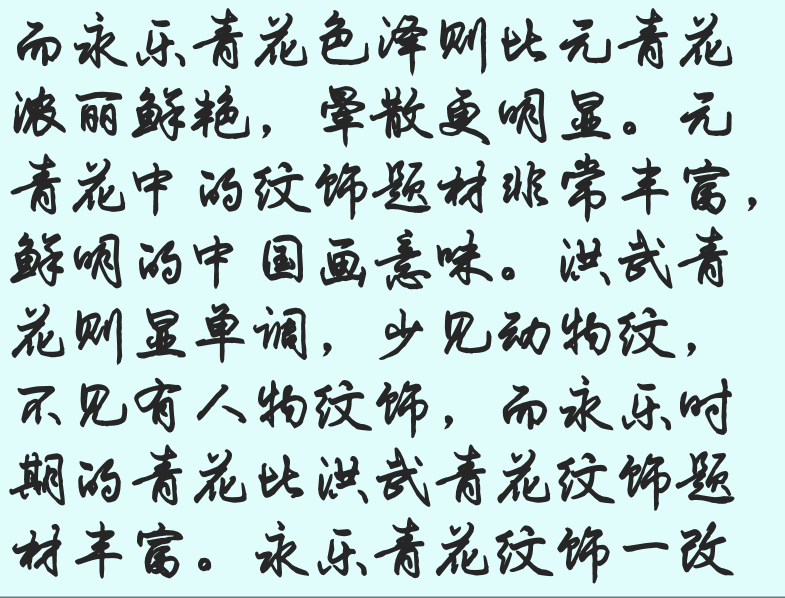 而永乐青花色泽则比元青花
浓丽鲜艳，晕散更明显。元
青花中的纹饰题材非常丰富，
鲜明的中国画意味。洪武青
花则显单调，少见动物纹，
不见有人物纹饰，而永乐时
期的青花比洪武青花纹饰题
材丰富。永乐青花纹饰一改